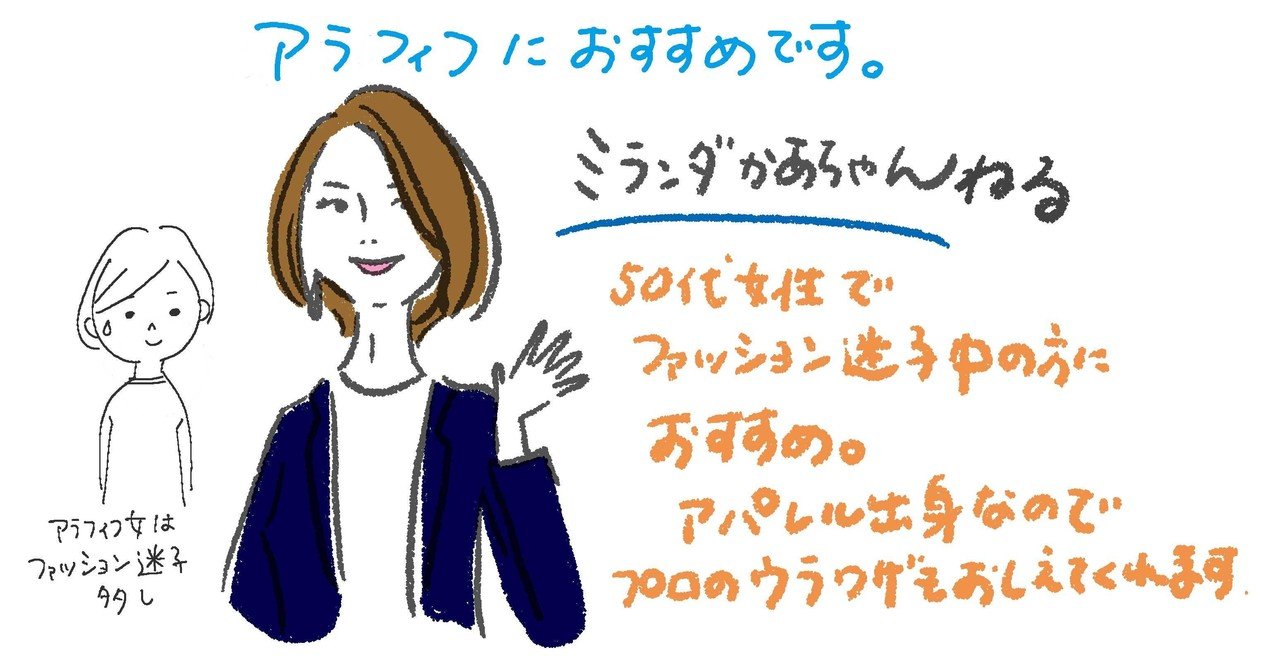 アラフィフにおすすめです。
ミランダかあちゃんねる
50代女性で
ファッション迷子中の方に
おすすめ。
アパレル出身なので
プロのウラワザをおしえてくれます.
アラフィフ女は
ファッション迷子
多し